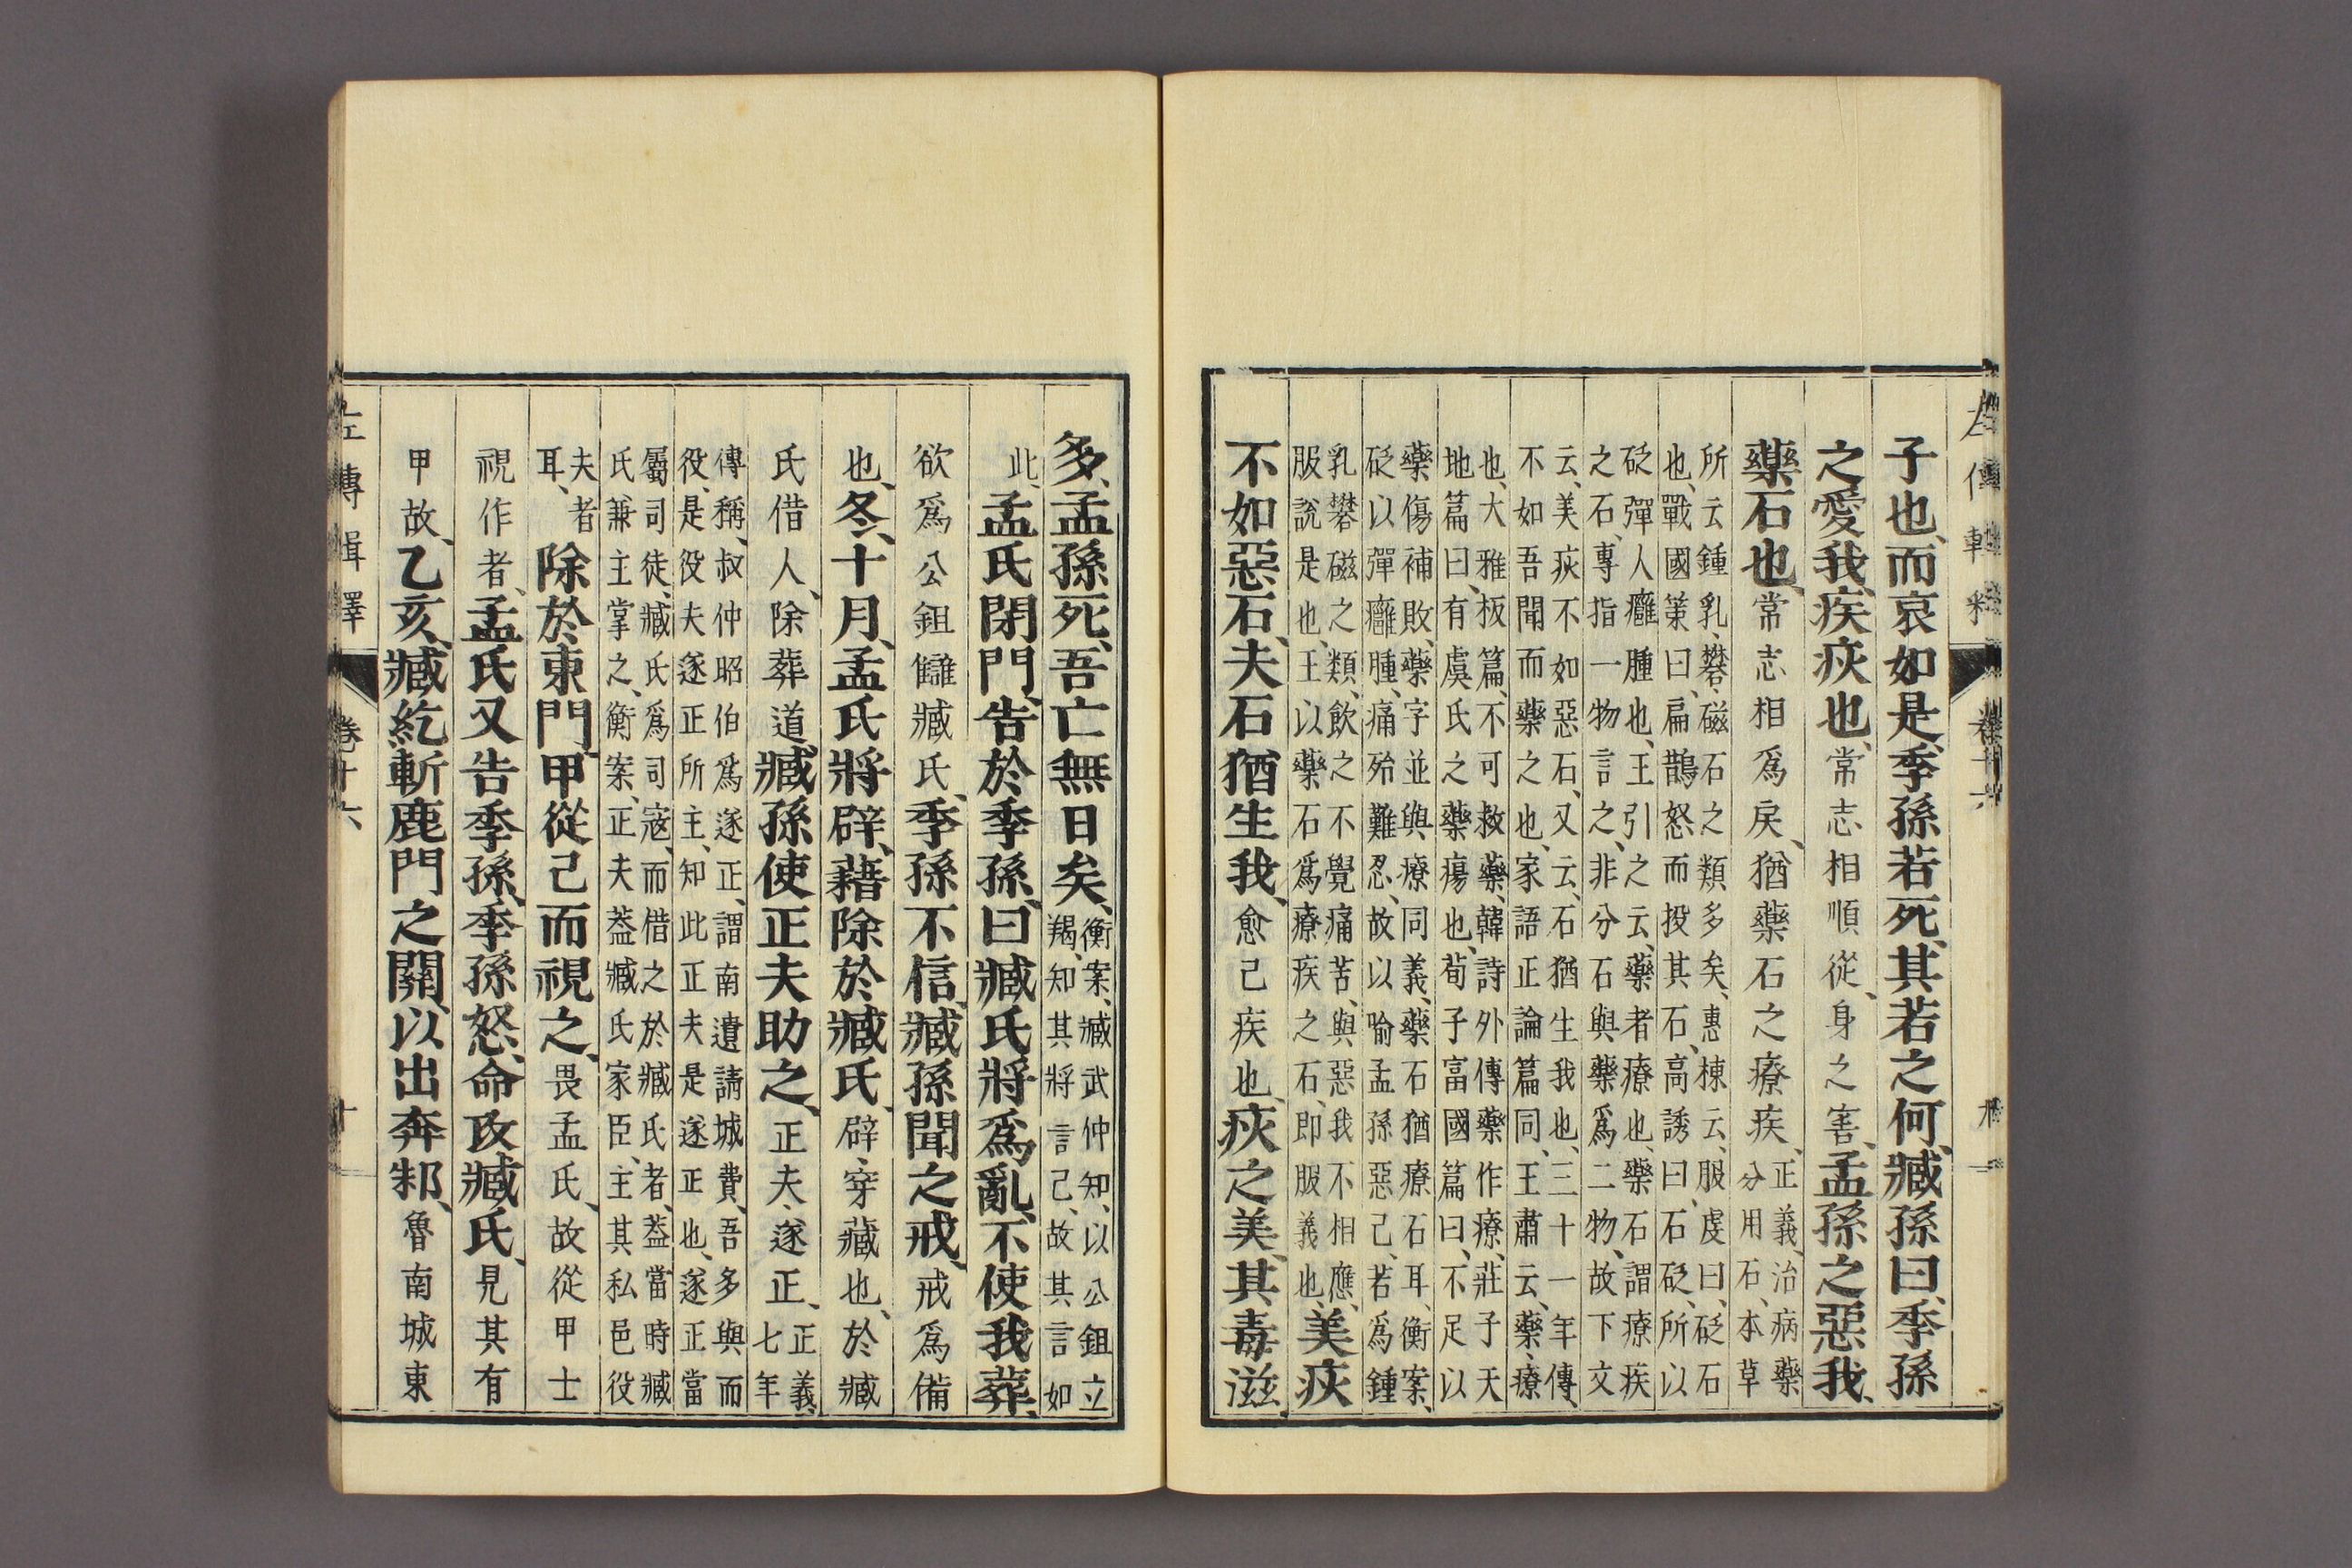 子也、而哀如是、季孫若死、其若之何、臧孫曰、季孫
之愛我、疾疢也、常志相順從、身之害、孟孫之惡我、
藥石也、常志相爲戾、猶藥石之療疾、正義、治病藥
分用石、本草
所云鍾乳、礬、磁石之類多矣、惠棟云、服虔曰、砭石
也、戰國策曰、扁鵲怒而投其石、高誘曰、石砭、所以
砭彈人癰腫也、王引之云、藥者療也、藥石謂療疾
之石、專指一物言之、非分石與藥爲二物、故下文
云、美疢不如惡石、又云、石猶生我也、三十一年傳、
不如吾聞而藥之也、家語正論篇同、王肅云、藥、療
也、大雅板篇、不可救藥、韓詩外傳藥作療、莊子天
地篇曰、有虞氏之藥瘍也、荀子富國篇曰、不足以
藥傷補敗、藥字並與療同義、藥石猶療石耳、衡案、
砭以彈癰腫、痛殆難忍、故以喻孟孫惡己、若爲鍾
乳礬磁之類、飲之不覺痛苦、與惡我不相應、
服說是也、王以藥石爲療疾之石、即服義也、美疢
不如惡石、夫石猶生我、愈己疾也、疢之美、其毒滋
多、孟孫死、吾亡無日矣、衡案、臧武仲知、以公鉏立
羯、知其將言己、故其言如
此、孟氏閉門、告於季孫、曰臧氏將爲亂、不使我葬、
欲爲公鉏讎臧氏、季孫不信、臧孫聞之戒、戒爲備
也、冬、十月、孟氏將辟、藉除於臧氏、辟、穿藏也、於臧
氏借人、除葬道、臧孫使正夫助之、正夫、遂正、正義、
七年
傳稱、叔仲昭伯爲遂正、謂南遺請城費、吾多與而
役、是役夫遂正所主、知此正夫是遂正也、遂正當
屬司徒、臧氏爲司寇、而借之於臧氏者、蓋當時臧
氏兼主掌之、衡案、正夫蓋臧氏家臣、主其私邑役
夫者
耳、除於東門、甲從己而視之、畏孟氏、故從甲士
視作者、孟氏又告季孫、季孫怒、命攻臧氏、見其有
甲故、乙亥、臧紇斬鹿門之關、以出奔邾、魯南城東
左傳輯釋 卷十六 十